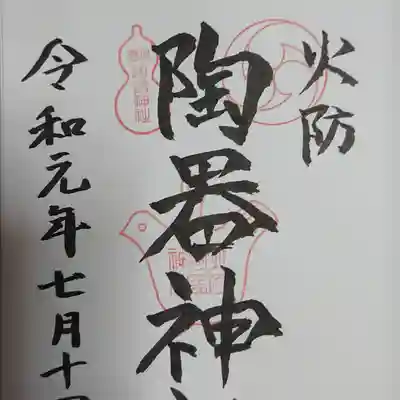 火防
陶器神
令和元年七月十